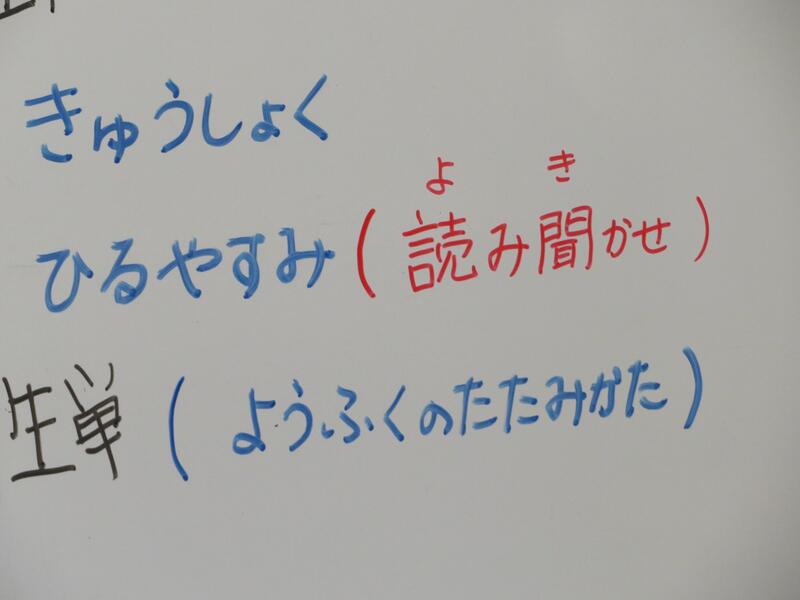 きゅうしょく
よ き
ひるやすみ(読み聞かせ)
生単(ようふくのたたみかた)